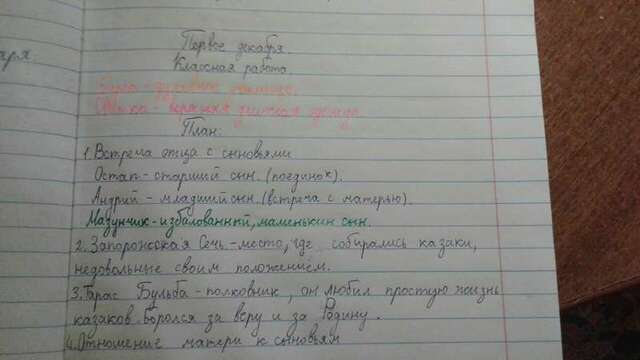 аря.
Первое декабря.
Классная работа.
Бурса - духовное училище.
Свитка - верхняя длинная одежда
План:
1. Встреча отца с сыновьями
Остап - старший сын. (поединок).
Андрий - младший сын. (встреча с матерью).
Мазунчик - избалованный, маменькин сын.
2. Запорожская Сечь - место, где собирались казаки,
недовольные своим положением.
3. Тарас Бульба - полковник, он любил простую жизнь
казаков. Боролся за веру и за Родину.
4. Отношение матери к сыновьям